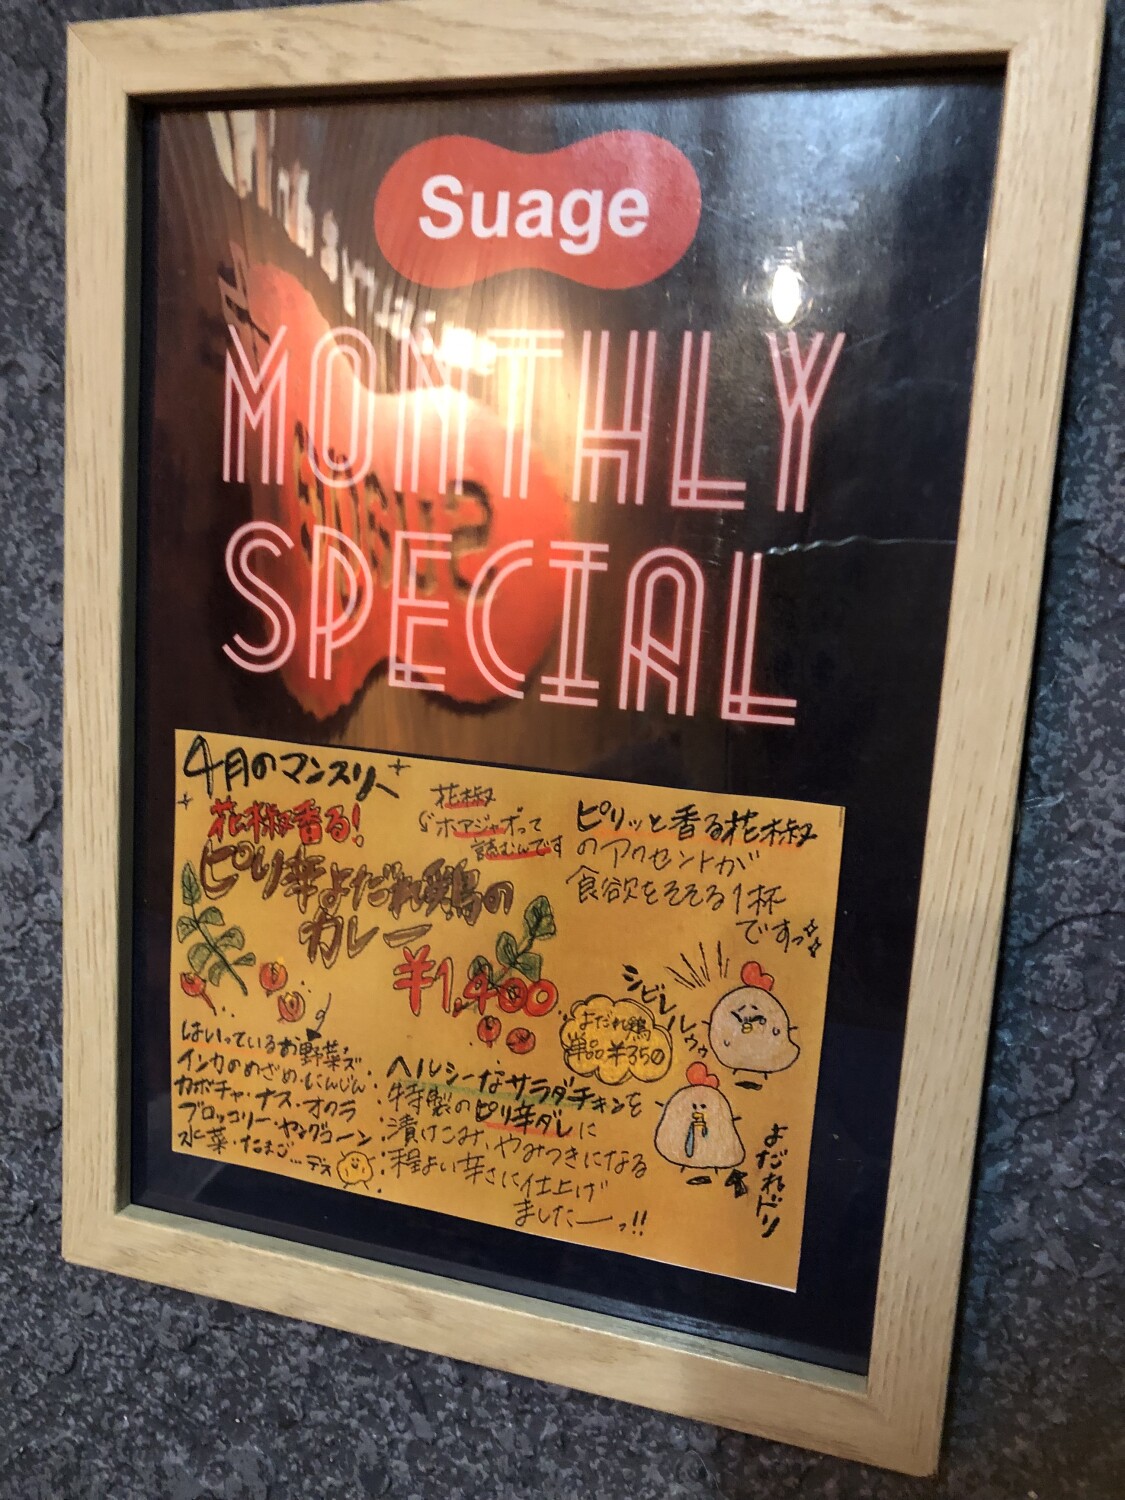 Suage
MONTHLY
SPECIAL
4月のマンスリー
花椒香る!
ピリ辛よだれ鶏の
カレー
¥1,400
花椒
ホアジャオって
読むんです
ピリッと香る花椒
のアクセントが
食欲をそそる1杯
ですっ
シビレルゥゥ
よだれ鶏
単品¥350
よだれドリ
はいっているお野菜ズ
インカのめざめ・にんじん・
カボチャ・ナス・オクラ
ブロッコリー・ヤングコーン
水菜・たまご…デス
ヘルシーなサラダチキンを
特製のピリ辛ダレに
漬けこみ、やみつきになる
程よい辛さに仕上げ
ましたーっ!!